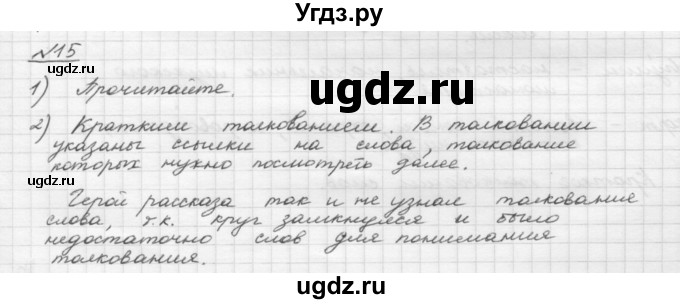 Угдз.ру
№15
ugdz.ru
1) Прочитайте.
ugdz.ru
2) Кратким толкованием. В толковании
указаны ссылки на слова, толкование
которых нужно посмотреть далее.
ugdz.ru
Герой рассказа так и не узнал толкования
слова, т.к. круг замкнулся и было
недостаточно слов для понимания
толкования.
ugdz.ru